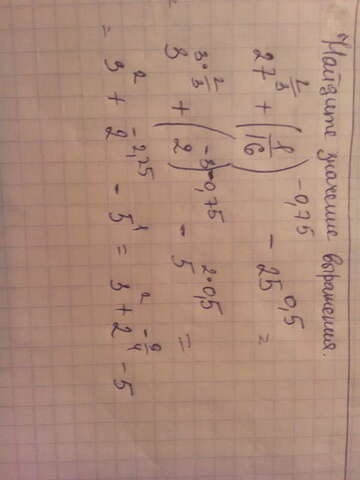 Найдите значение выражения.
27^{2/3} + (1/16)^{-0,75} - 25^{0,5} =
3^{3·2/3} + (2)^{-3·0,75} - 5^{2·0,5} =
= 3^2 + 2^{-2,25} - 5^1 = 3^2 + 2^{-9/4} - 5